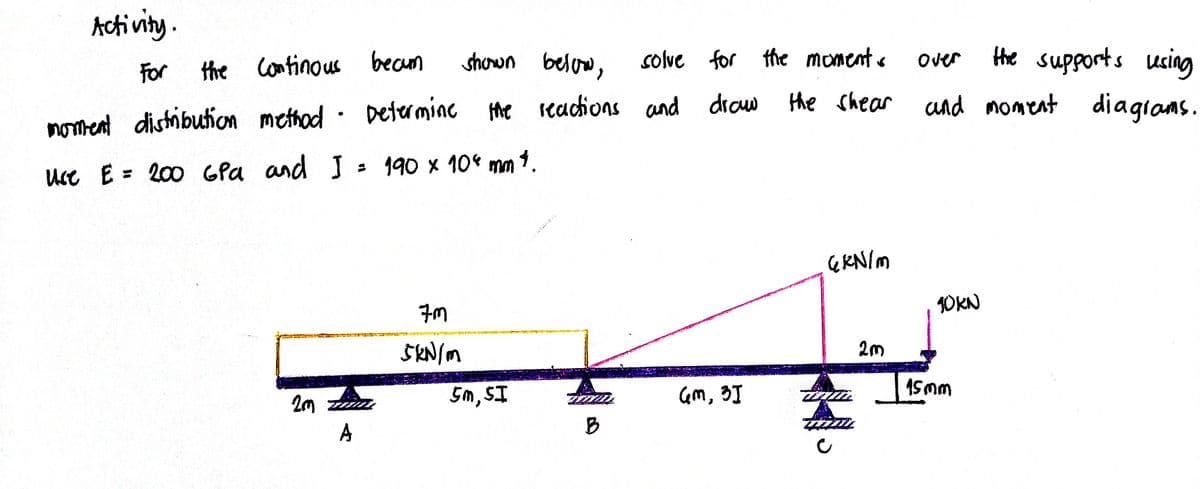 Activity.
For the Continous beam shown below, solve for the moments over the supports using
moment distribution method. Determine the reactions and draw the shear and moment diagrams.
Use E = 200 GPa and I = 190 x 10⁶ mm⁴.
6KN/m
10KN
7m
5KN/m
2m
2m
5m, 5I
6m, 3I
15mm
A
B
C